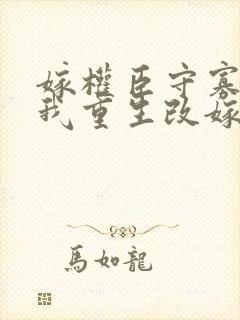 嫁權臣守寡
我重生改嫁
馬如龍